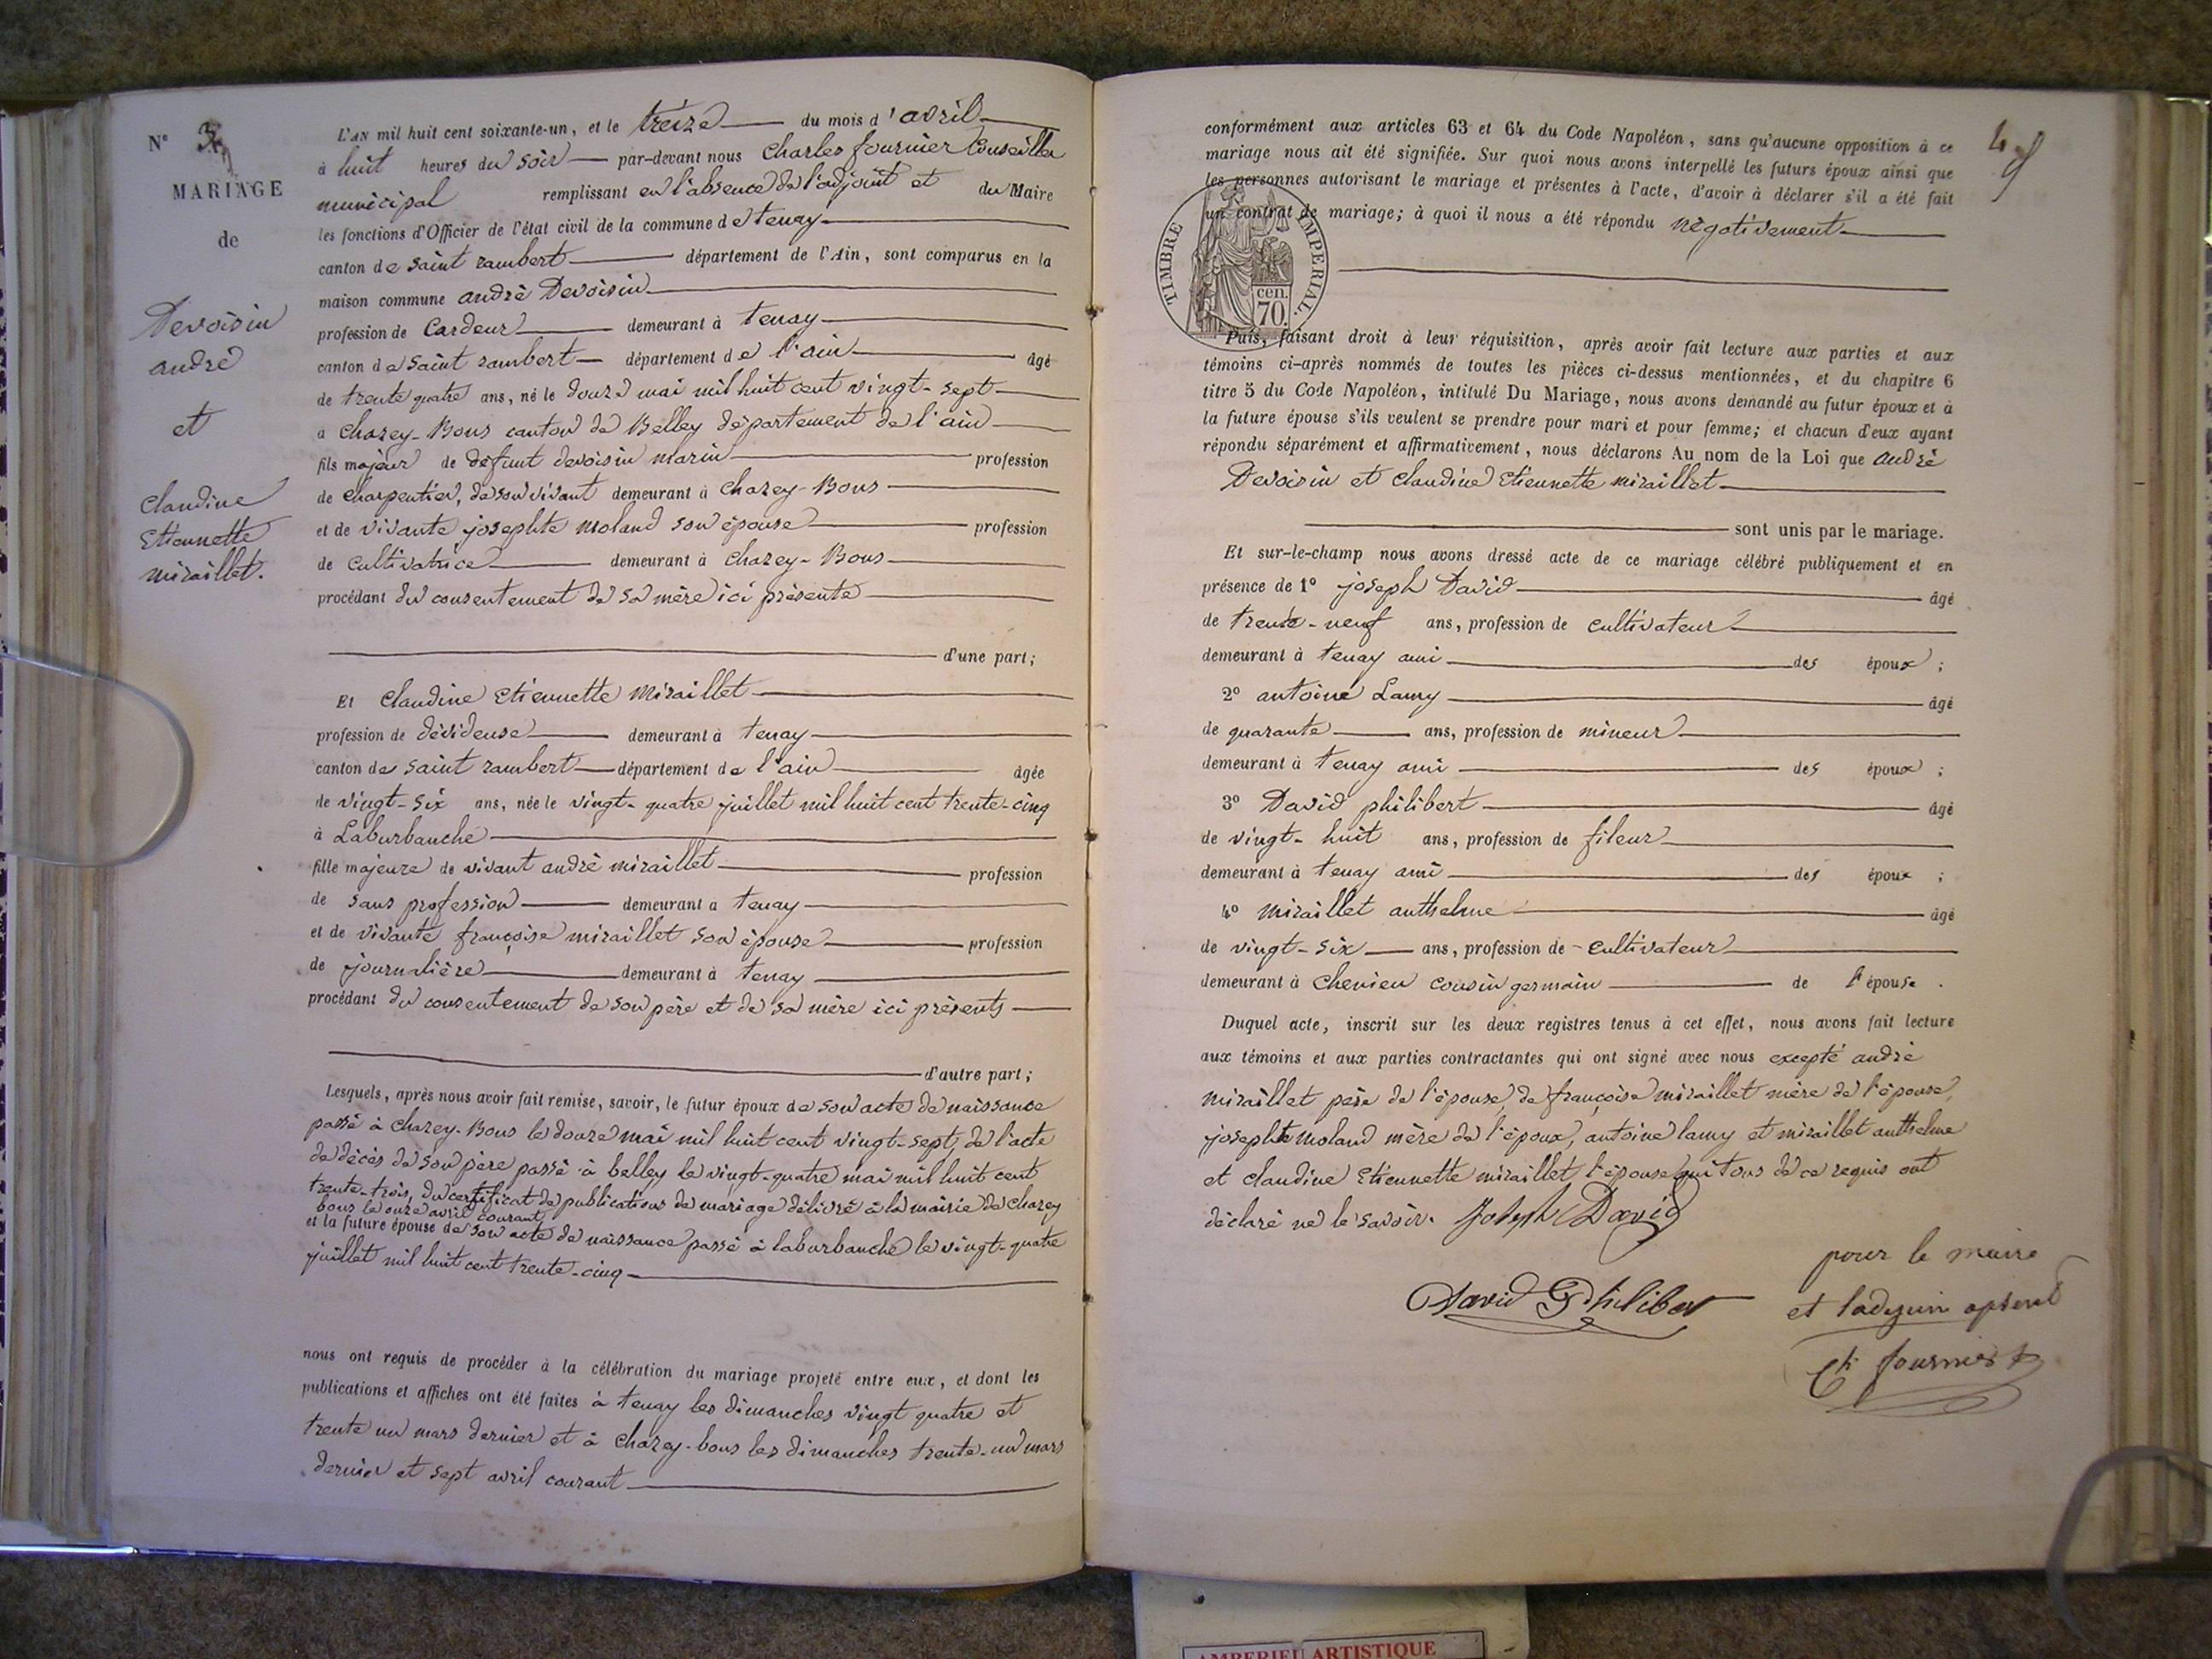 N°
MARIAGE
de
Devoisin
andré
et
Claudine
Etiennette
miraillet.
L'AN mil huit cent soixante-un, et le treize du mois d'avril
à huit heures du soir par-devant nous Charles fournier Conseiller
municipal remplissant en l'absence de l'adjoint et du Maire
les fonctions d'Officier de l'état civil de la commune de tenay
canton de saint rambert département de l'Ain, sont comparus en la
maison commune andré Devoisin
profession de Cardeur demeurant à tenay
canton de saint rambert département de l'ain âgé
de trente quatre ans, né le douze mai mil huit cent vingt-sept
à Chazey-Bons canton de Belley département de l'ain
fils majeur de défunt devoisin marin profession
de charpentier, de son vivant demeurant à Chazey-Bons
et de vivante josephte moland son épouse profession
de Cultivatrice demeurant à Chazey-Bons
procédant du consentement de sa mère ici présente
d'une part;
Et Claudine Etiennette Miraillet
profession de dévideuse demeurant à tenay
canton de saint rambert département de l'ain âgée
de vingt-six ans, née le vingt-quatre juillet mil huit cent trente-cinq
à Laburbanche
fille majeure de vivant andré miraillet profession
de sans profession demeurant à tenay
et de vivante françoise miraillet son épouse profession
de journalière demeurant à tenay
procédant du consentement de son père et de sa mère ici présents
d'autre part;
Lesquels, après nous avoir fait remise, savoir, le futur époux de son acte de naissance
passé à Chazey-Bons le douze mai mil huit cent vingt-sept, de l'acte
de décès de son père passé à belley le vingt-quatre mai mil huit cent
trente-trois, du certificat de publications de mariage délivré à la mairie de Chazey
bons le onze avril courant
et la future épouse de son acte de naissance passé à laburbanche le vingt-quatre
juillet mil huit cent trente-cinq
nous ont requis de procéder à la célébration du mariage projeté entre eux, et dont les
publications et affiches ont été faites à tenay les dimanches vingt quatre et
trente un mars dernier et à Chazey-bons les dimanches trente-un mars
dernier et sept avril courant
conformément aux articles 63 et 64 du Code Napoléon, sans qu'aucune opposition à ce
mariage nous ait été signifiée. Sur quoi nous avons interpellé les futurs époux ainsi que
les personnes autorisant le mariage et présentes à l'acte, d'avoir à déclarer s'il a été fait
un contrat de mariage; à quoi il nous a été répondu négativement
TIMBRE IMPERIAL
70 cen.
Puis, faisant droit à leur réquisition, après avoir fait lecture aux parties et aux
témoins ci-après nommés de toutes les pièces ci-dessus mentionnées, et du chapitre 6
titre 5 du Code Napoléon, intitulé Du Mariage, nous avons demandé au futur époux et à
la future épouse s'ils veulent se prendre pour mari et pour femme; et chacun d'eux ayant
répondu séparément et affirmativement, nous déclarons Au nom de la Loi que André
Devoisin et Claudine Etiennette miraillet
sont unis par le mariage.
Et sur-le-champ nous avons dressé acte de ce mariage célébré publiquement et en
présence de 1° joseph David âgé
de trente-neuf ans, profession de cultivateur
demeurant à tenay ami des époux;
2° antoine Lamy âgé
de quarante ans, profession de mineur
demeurant à tenay ami des époux;
3° David philibert âgé
de vingt-huit ans, profession de fileur
demeurant à tenay ami des époux;
4° Miraillet anthelme âgé
de vingt-six ans, profession de cultivateur
demeurant à chenieu cousin germain de l'épouse.
Duquel acte, inscrit sur les deux registres tenus à cet effet, nous avons fait lecture
aux témoins et aux parties contractantes qui ont signé avec nous excepté andré
miraillet père de l'épouse, de françoise miraillet mère de l'épouse,
josephte moland mère de l'époux, antoine lamy et miraillet anthelme
et claudine Etiennette miraillet l'épouse qui tous de ce requis ont
déclaré ne le savoir. Joseph David
David Philibert
pour le maire
et
Ch fournier
AMBERIEU ARTISTIQUE